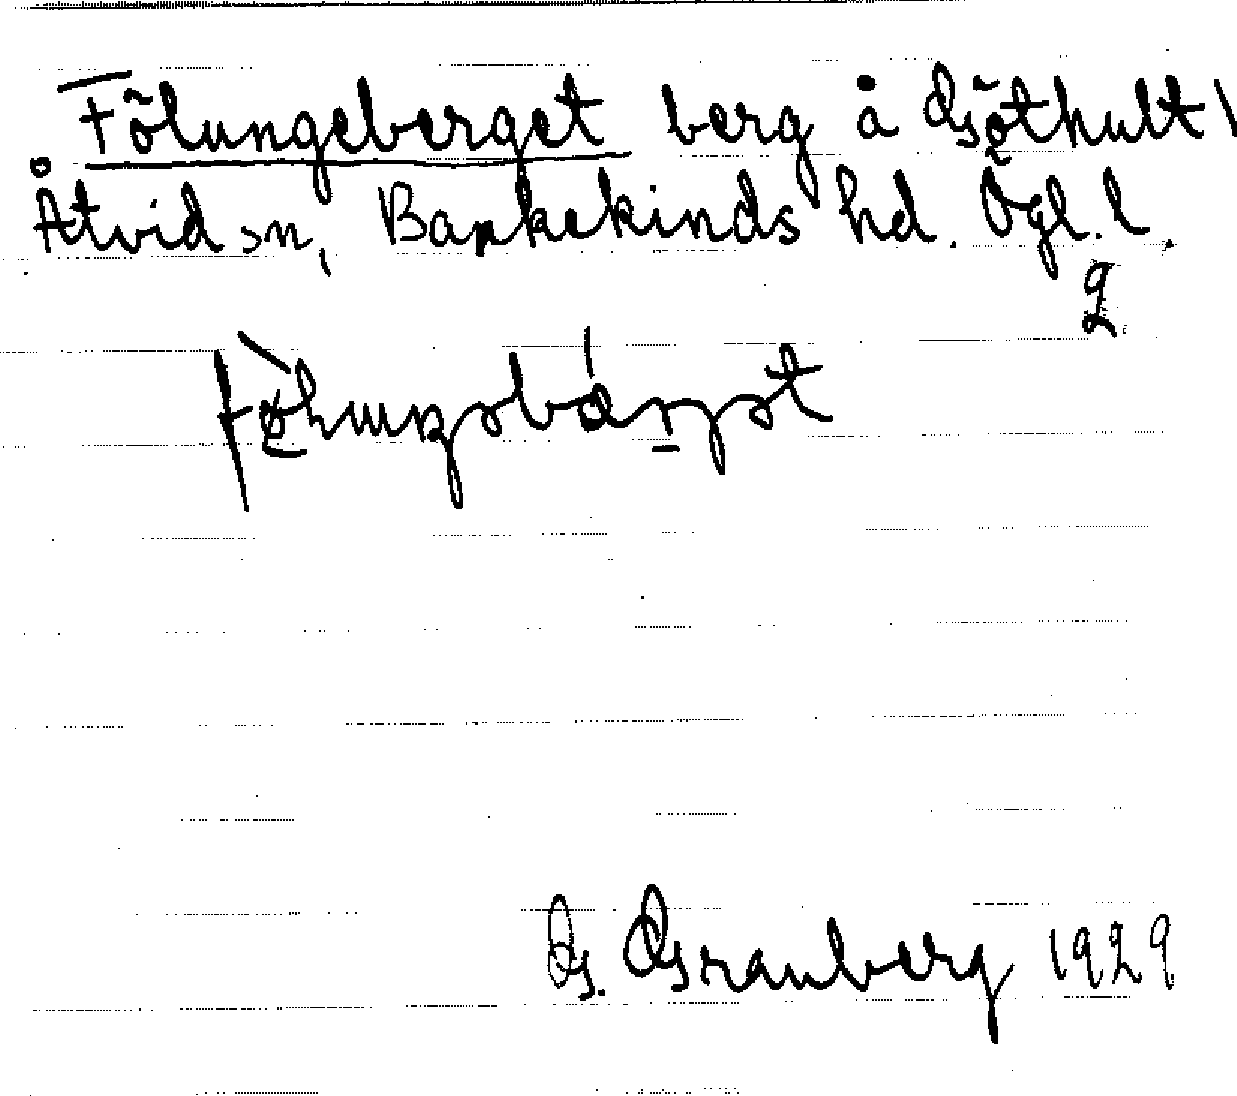 Fölungeberget berg å Göthult
Åtvid sn, Bankekinds hd. Ögl. l.
2.
G. Granberg 1929